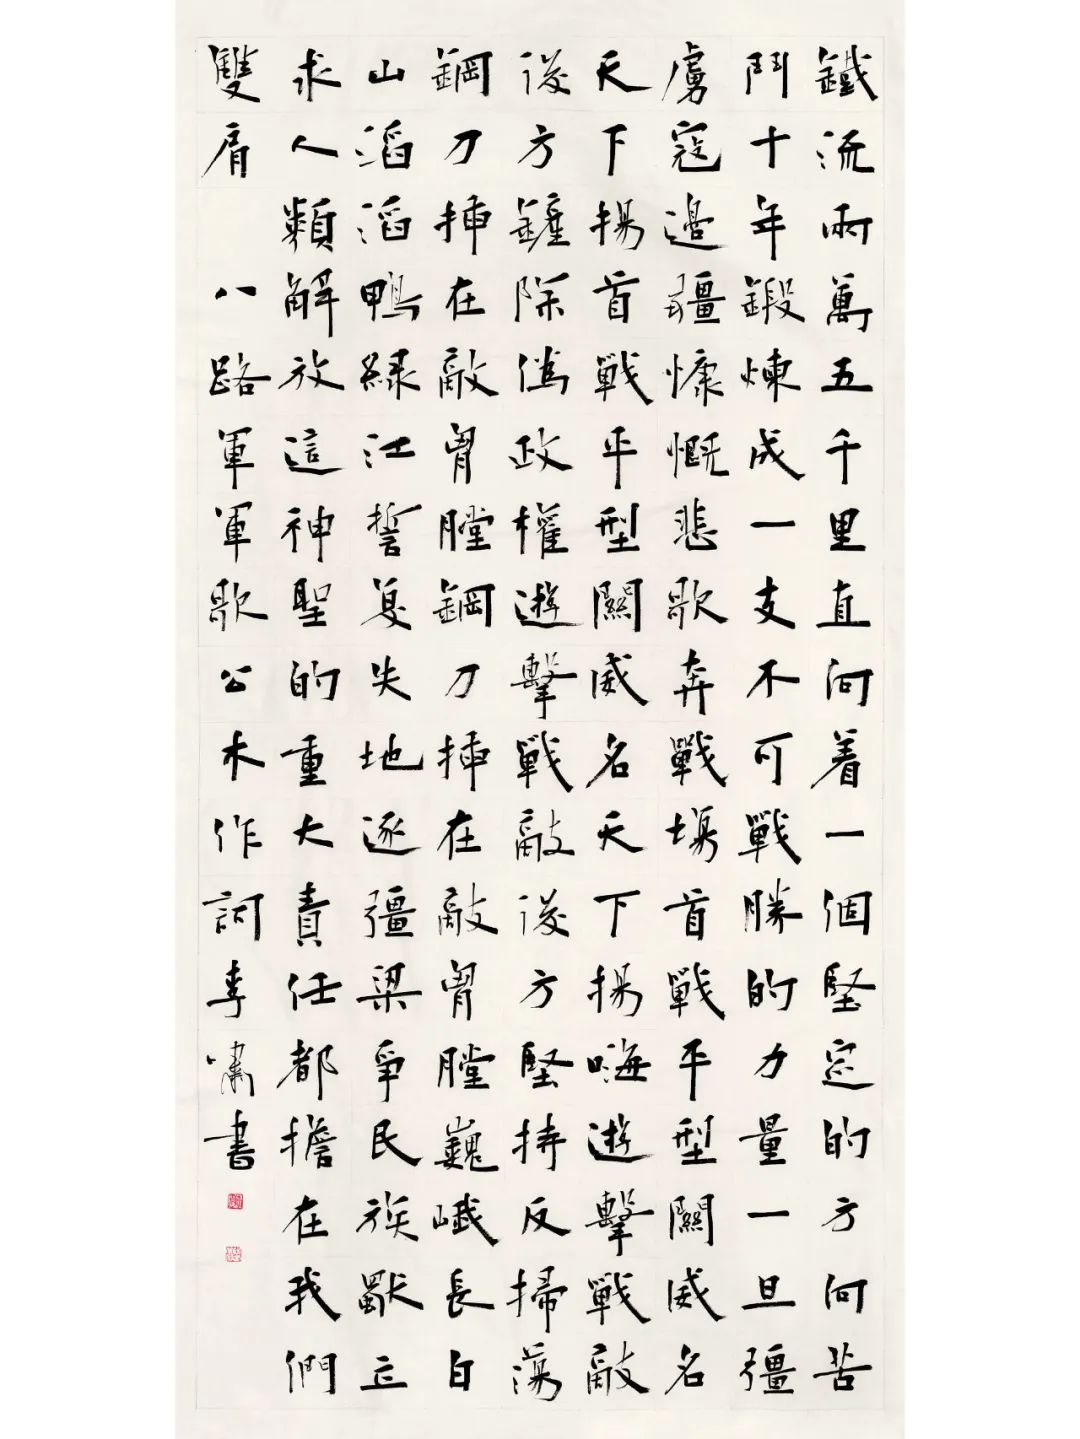 鐵流兩萬五千里直向着一個堅定的方向苦
鬥十年鍛煉成一支不可戰勝的力量一旦彊
虜寇邊疆慷慨悲歌奔戰場首戰平型關威名
天下揚首戰平型關威名天下揚嗨遊擊戰敵
後方鏟除僞政權遊擊戰敵後方堅持反掃蕩
鋼刀插在敵胷膛鋼刀插在敵胷膛巍峨長白
山滔滔鴨緑江誓复失地逐彊梁爭民族獨立
求人類解放這神聖的重大責任都擔在我們
雙肩 八路軍軍歌公木作詞李嘯書